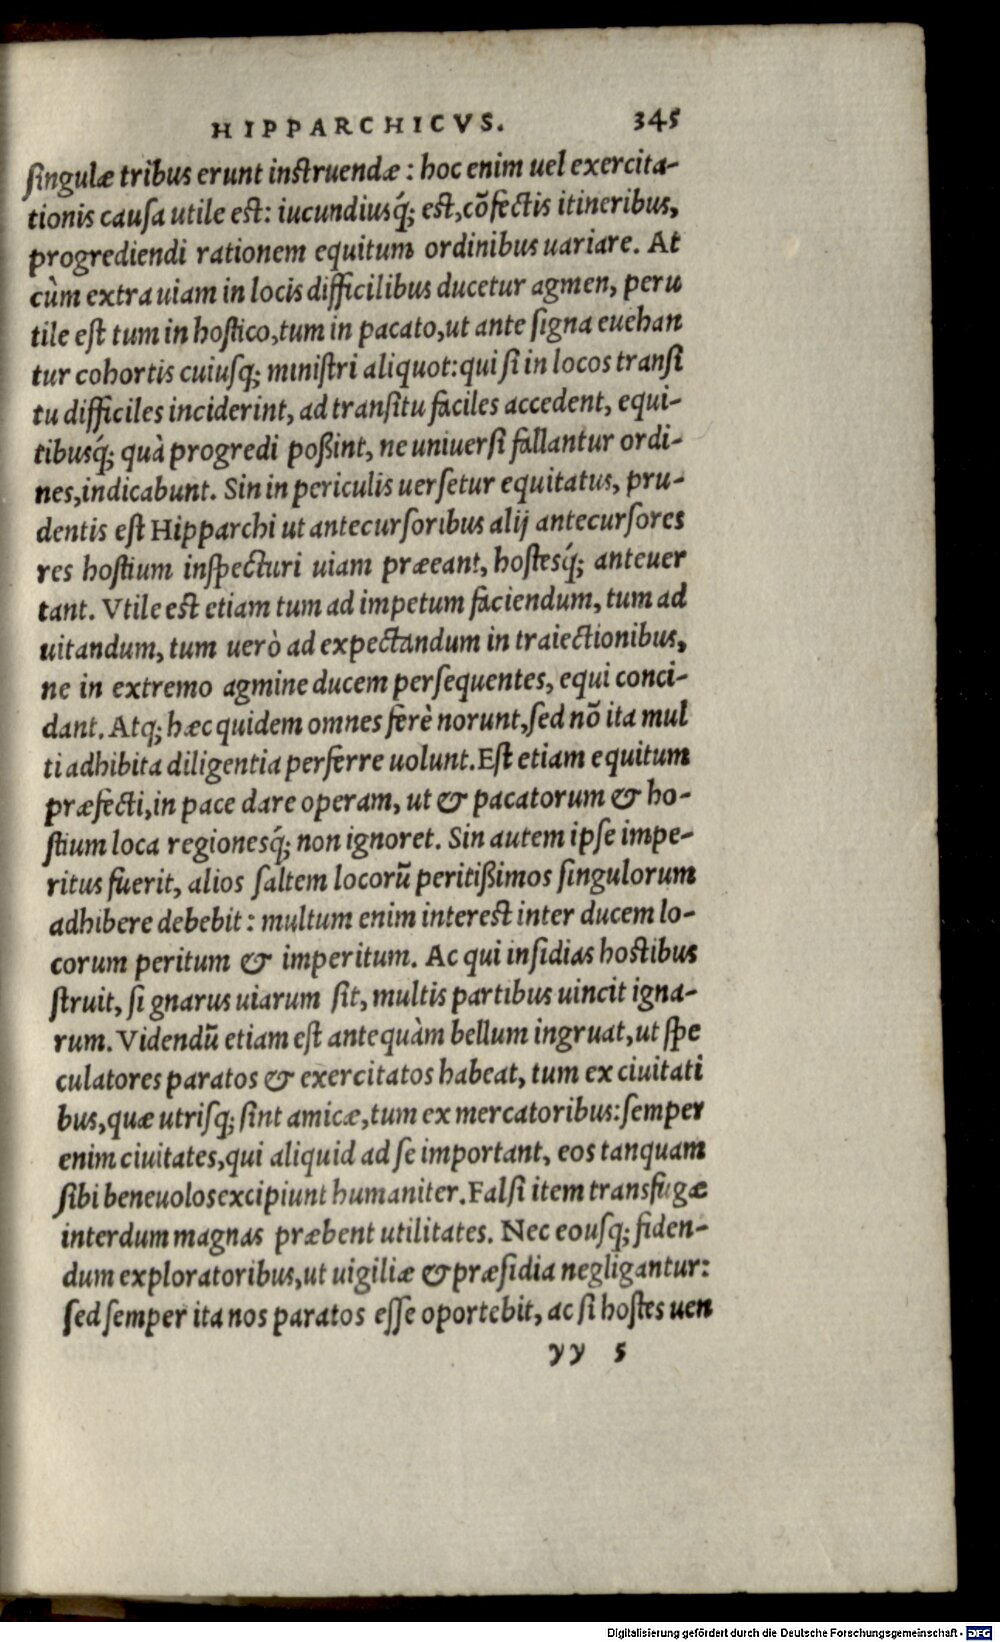 HIPPARCHICVS. 345
ſingulæ tribus erunt inſtruendæ : hoc enim uel exercita-
tionis cauſa utile eſt: iucundiusq́; eſt, cõfectis itineribus,
progrediendi rationem equitum ordinibus uariare. At
cùm extra uiam in locis difficilibus ducetur agmen, peru
tile eſt tum in hoſtico, tum in pacato, ut ante ſigna euehan
tur cohortis cuiuſq; miniſtri aliquot: qui ſi in locos tranſi
tu difficiles inciderint, ad tranſitu faciles accedent, equi-
tibusq́; quà progredi poßint, ne uniuerſi fallantur ordi-
nes, indicabunt. Sin in periculis uerſetur equitatus, pru-
dentis eſt Hipparchi ut antecurſoribus alij antecurſores
res hoſtium inſpecturi uiam præeant, hoſtesq́; anteuer
tant. Vtile eſt etiam tum ad impetum faciendum, tum ad
uitandum, tum uerò ad expectandum in traiectionibus,
ne in extremo agmine ducem perſequentes, equi conci-
dant. Atq; hæc quidem omnes ferè norunt, ſed nõ ita mul
ti adhibita diligentia perferre uolunt. Eſt etiam equitum
præfecti, in pace dare operam, ut & pacatorum & ho-
ſtium loca regionesq́; non ignoret. Sin autem ipſe impe-
ritus fuerit, alios ſaltem locorũ peritißimos ſingulorum
adhibere debebit : multum enim intereſt inter ducem lo-
corum peritum & imperitum. Ac qui inſidias hoſtibus
ſtruit, ſi gnarus uiarum ſit, multis partibus uincit igna-
rum. Videndũ etiam eſt antequàm bellum ingruat, ut ſpe
culatores paratos & exercitatos habeat, tum ex ciuitati
bus, quæ utriſq; ſint amicæ, tum ex mercatoribus: ſemper
enim ciuitates, qui aliquid ad ſe important, eos tanquam
ſibi beneuolos excipiunt humaniter. Falſi item transfugæ
interdum magnas præbent utilitates. Nec eouſq; fiden-
dum exploratoribus, ut uigiliæ & præſidia negligantur:
ſed ſemper ita nos paratos eſſe oportebit, ac ſi hoſtes uen
yy 5
Digitalisierung gefördert durch die Deutsche Forschungsgemeinschaft - DFG